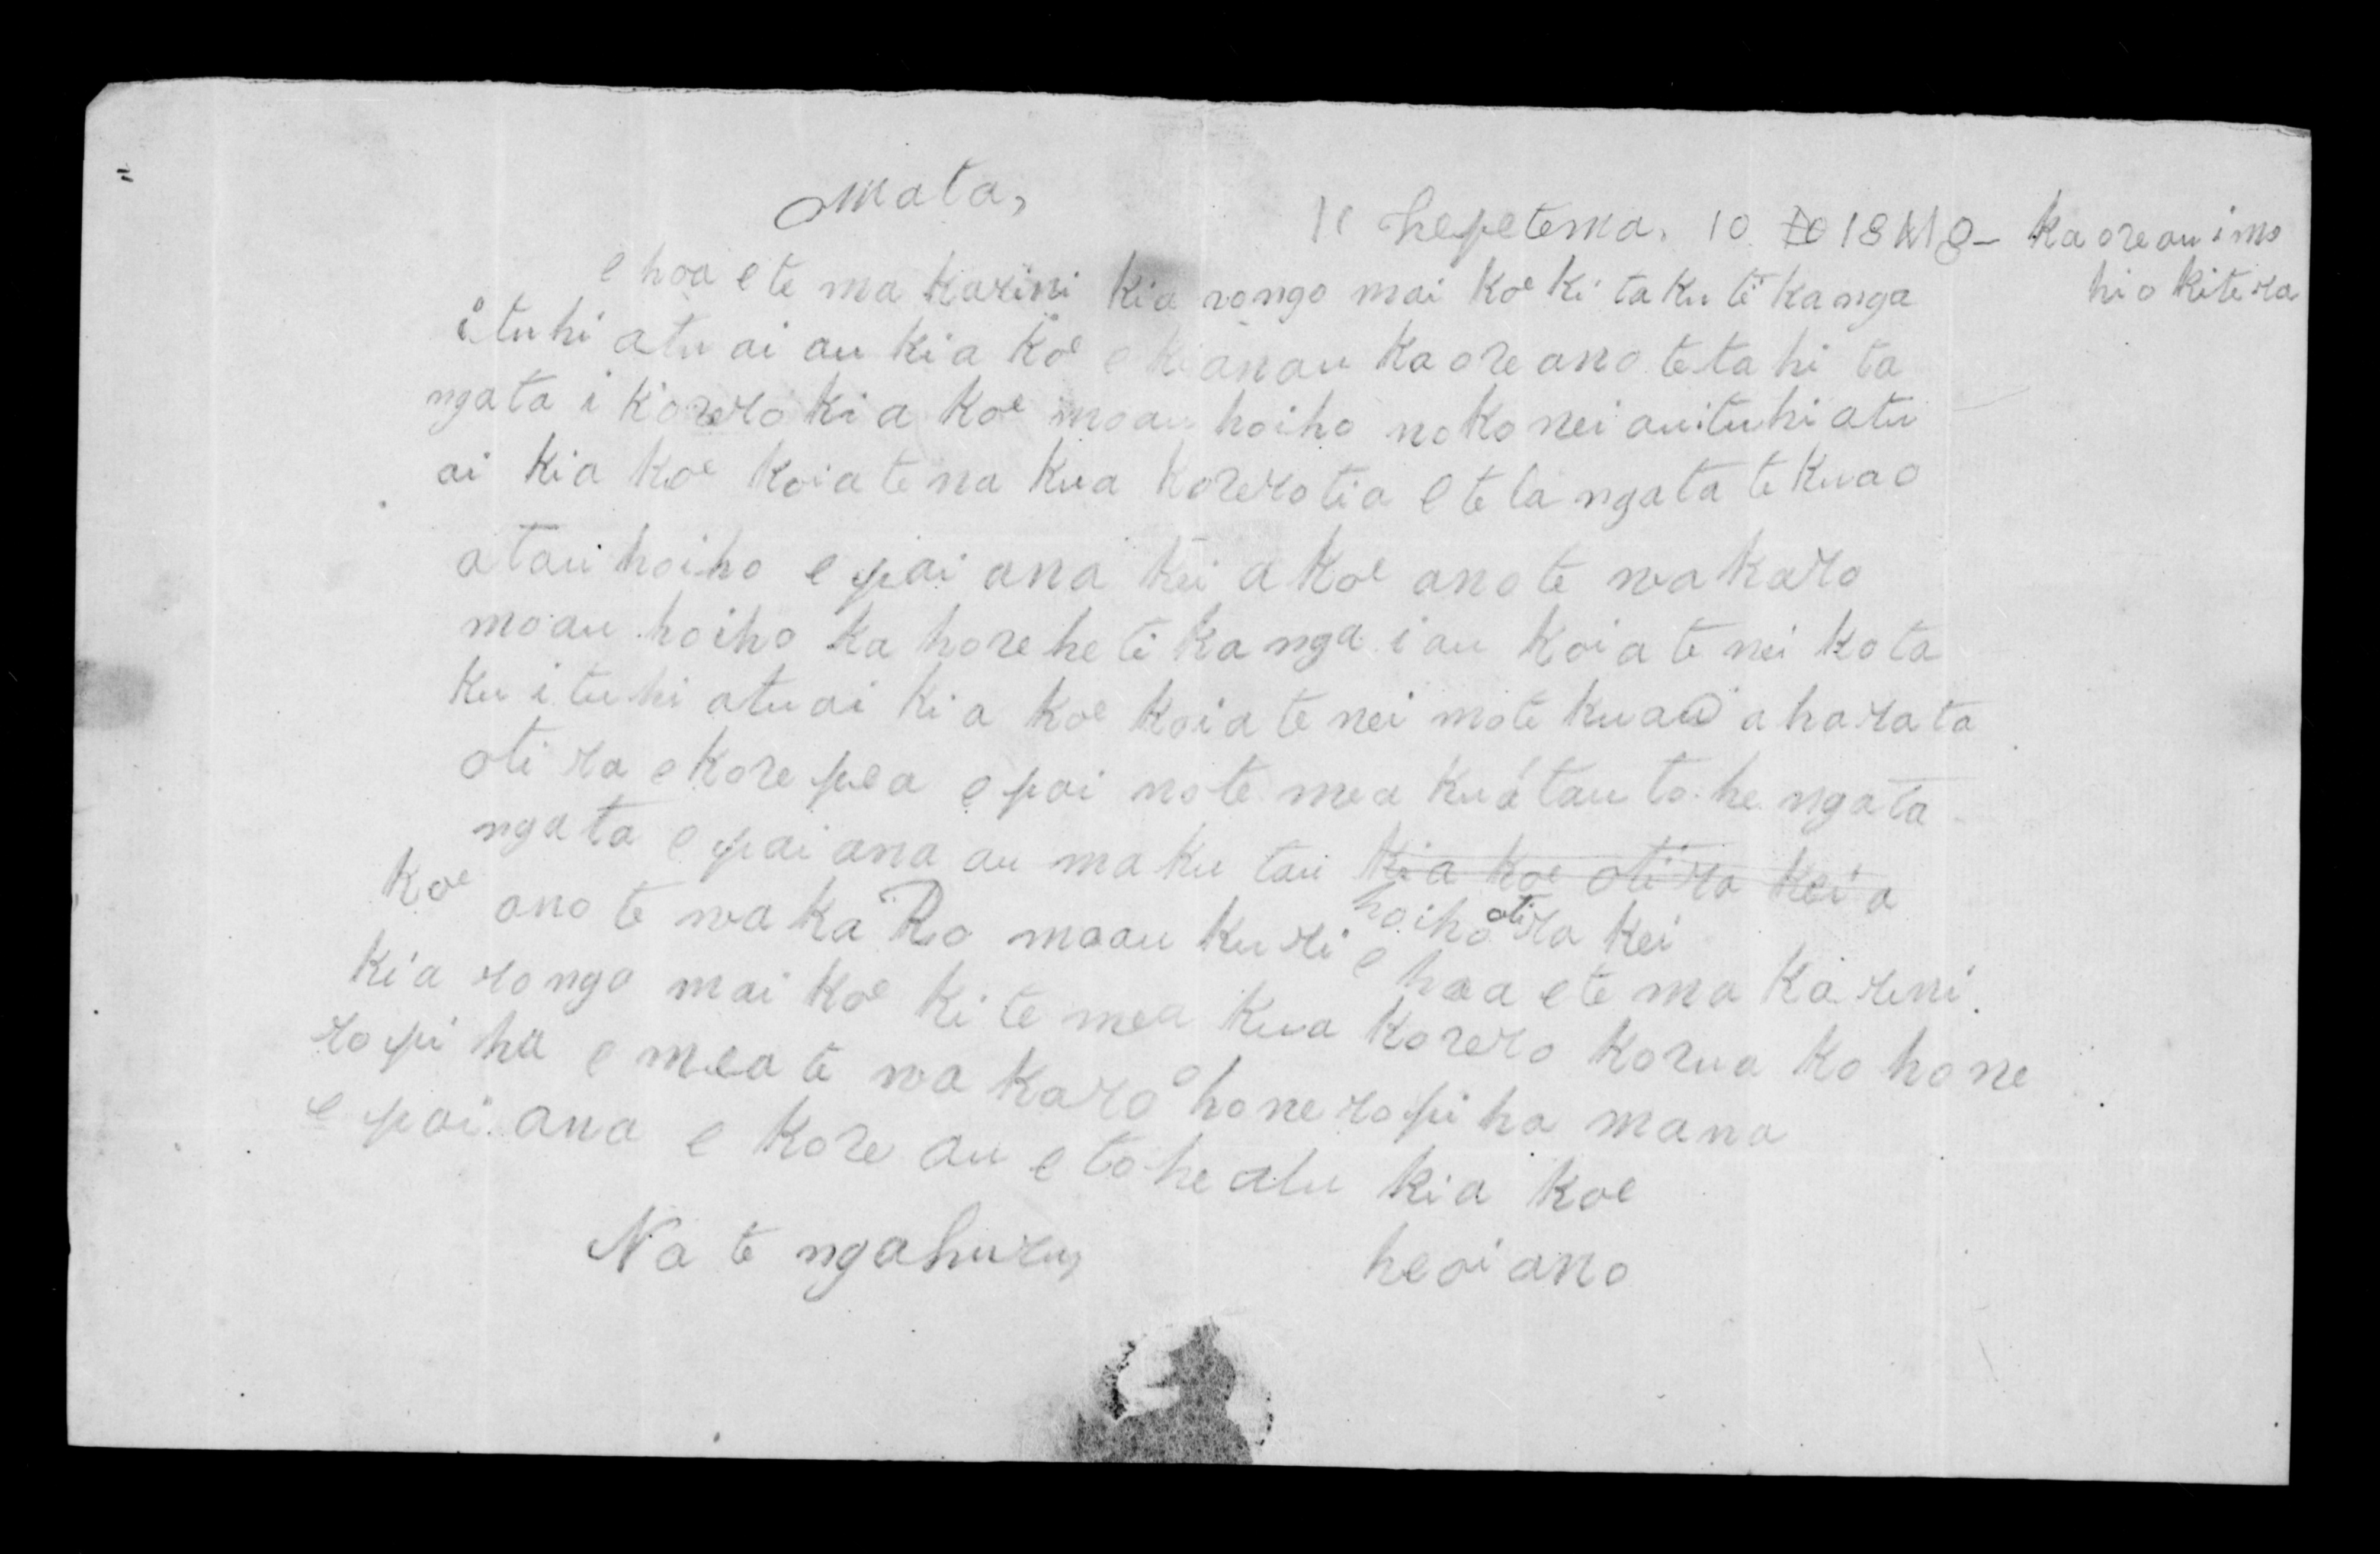 Omata,
Hepetema, 10 18 ka ore au i mo
hio kite ra
e hoa e te ma karini kia rongo mai koe ki taku tikanga
i tuhi atu ai au kia koe e ki ana au kaore ano tetahi ta
ngata i korero kia koe moau hoiho no konei au i tuhi atu
ai kia koe koia tena kua korerotia e te tangata te kuao
atau hoiho e pai ana kei a koe ano te wakaro
moau hoiho kahore he tikanga i au koia tenei ko ta
ku i tuhi atu ai kia koe koia tenei mo te kuao a harata
otira e kore pea e pai no te mea kua tau tohe nga ta
ngata e pai ana au maku tau kia koe otira kei a
hoiho otira kei
koe ano te wakaRo moau kuri e hoa e te ma kareni.
kia rongo mai koe ki te mea kua korero korua ko hone
ropiha e mea te wakaro o hone ropiha mana
e pai ana e kore au e tohe atu kia koe
Na te ngahuru, heoi ano